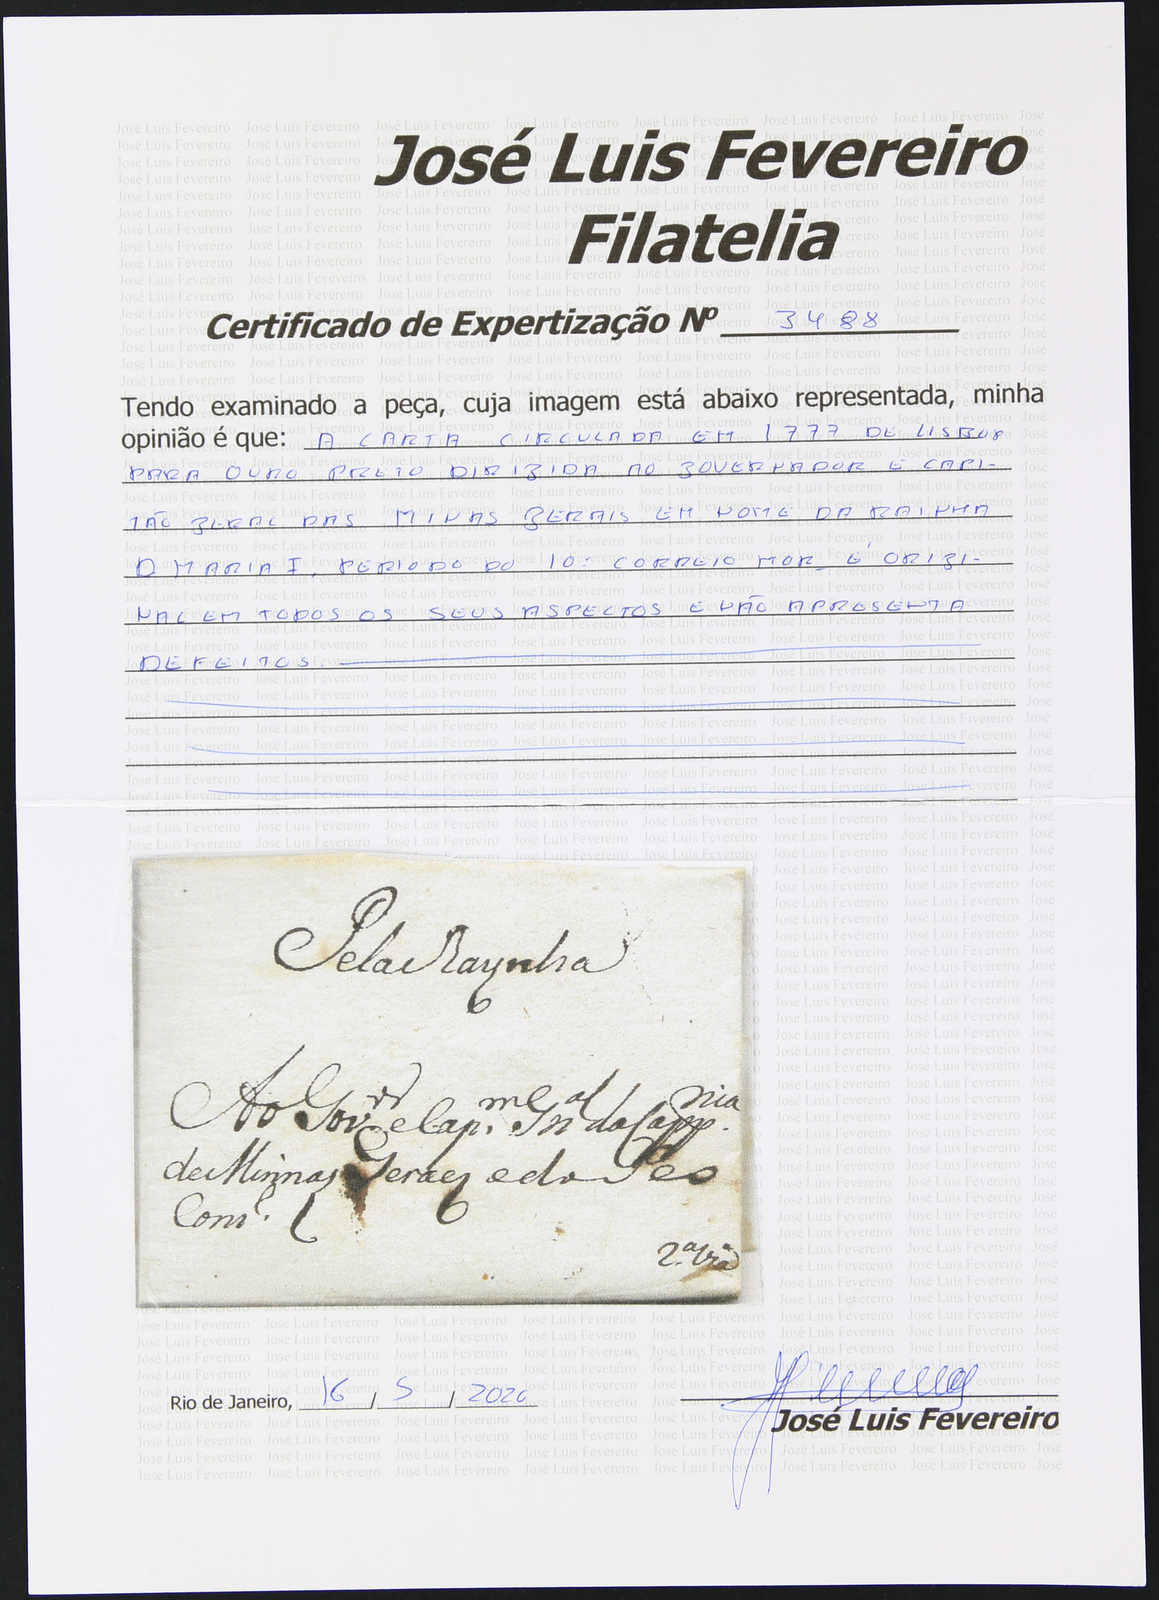 José Luis Fevereiro
Filatelia
Certificado de Expertização Nº 3488
Tendo examinado a peça, cuja imagem está abaixo representada, minha
opinião é que: A CARTA CIRCULADA EM 1777 DE LISBOA
PARA OURO PRETO DIRIGIDA AO GOVERNADOR E CAPI-
TÃO GERAL DAS MINAS GERAIS EM NOME DA RAINHA
D MARIA I, PERIODO DO 10º CORREIO MOR, É ORIGI-
NAL EM TODOS OS SEUS ASPECTOS E NÃO APRESENTA
DEFEITOS.
Pela Raynha
Ao Govor. e Capm. Gnal da Cappnia.
de Minnas Geraes e do Seo
Consº.
2.ª via
Rio de Janeiro, 16 / 5 / 2020
José Luis Fevereiro